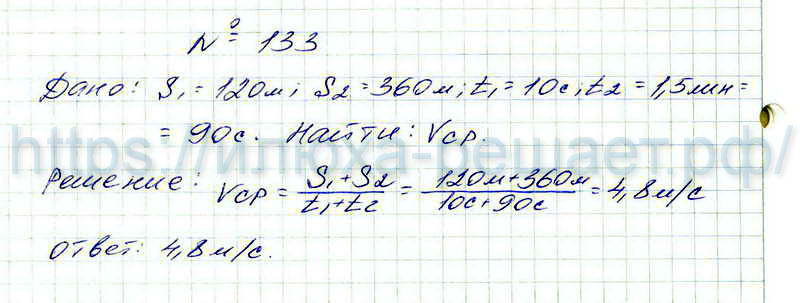 № 133
Дано: S₁ = 120м; S₂ = 360м; t₁ = 10с; t₂ = 1,5мин =
= 90с. Найти: Vср.
https://илюха-решает.рф/
Решение: Vср = S₁+S₂/t₁+t₂ = 120м+360м/10с+90с = 4,8м/с
Ответ: 4,8м/с.